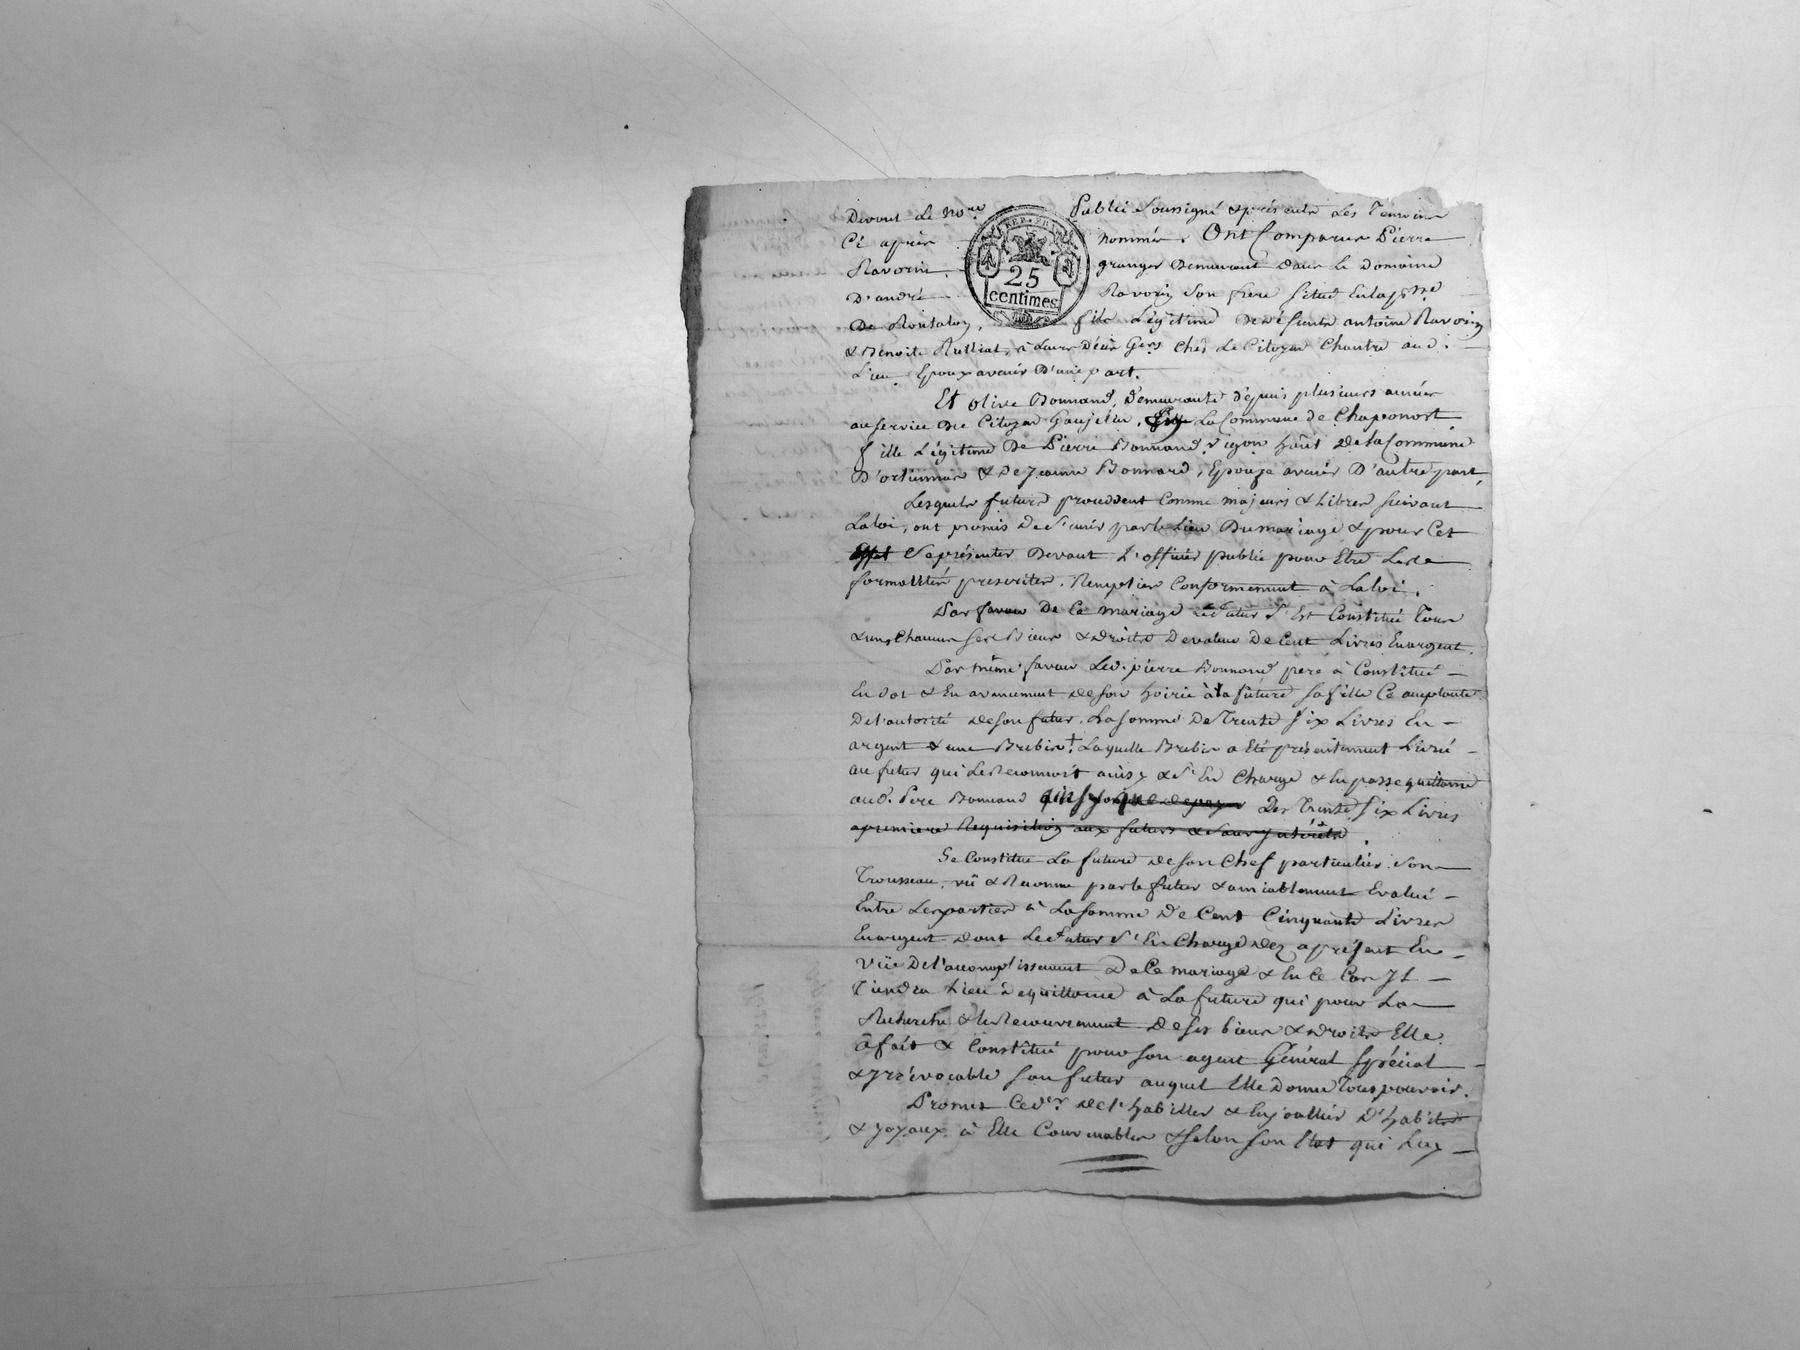 Devant le no.re Public Soussigné & présents les Temoins
Ci après nommés. Ont Comparus Pierre
Ravorin granger Demeurant dans le Domaine
D'andré Ravorin Son frere situé En la p.sse
De Montaloy, fils Légitime De défunts antoine Ravorin
& Benoite Rulliat, à Laurs Déür Gers Chés Le Citoyen Chantre aud.
Lieu Epoux avenir D'une part.
Et olive Bonnand, Demeurante depuis plusieurs années
au service du Citoyen Gaujelin, La Commune de Chaponost
fille Légitime De Pierre Bonnand, vigon habt. de la Commune
D'orliennas & de Jeanne Bonnard, Epouze avenir D'autre part,
Lesquels futurs procedent Comme majeurs & Libres suivant
La Loi, ont promis De s'unir par le Lien Du mariage & pour Cet
Effet Se présenter Devant L'officier public pour Etre Les
formalités prescrites, Remplies Conformement à La loi.
Par faveur De Ce mariage Le futur S'Est Constitué Tous
& uns Chacuns ses Biens & droits De valeur De Cent Livres En argent.
Par même faveur Led. pierre Bonnand pere à Constitué
En dot & En avancement de son hoirie à la future sa fille Ce acceptante
De l'autorité de son futur, La somme De Trente six Livres En
argent & une Brebis †. Laquelle Brebis a Eté présentement Livré
au futur qui Le Reconnoit ainsy & S'En Charge & En passe quittance
aud. Pere Bonnand Des Trente six Livres
a premiere Requisition aux futurs & sans Intérêts.
Se Constitue La future de son Chef particulier Son
Trousseau, vü & Reconnu par le futur & amiablement Evalué
Entre Les parties à La somme De Cent Cinquante Livres
En argent dont Le futur S'En Charge dez a présent En
Vüe De l'accomplissement De Ce mariage & En Ce Cas Il
Tiendra Lieu de quittance à La future qui pour La
Recherche & le Recouvrement De ses biens & droits Elle
à fait & Constitué pour son agent Général Spécial
& Irrévocable son futur auquel Elle Donne Tous pouvoirs.
Promet Ced.er de l'habiller & Enjoallier D'habits
& Joyaux à Elle Convenables & selon son Etat qui Luy
REP. FRA.
25
centimes